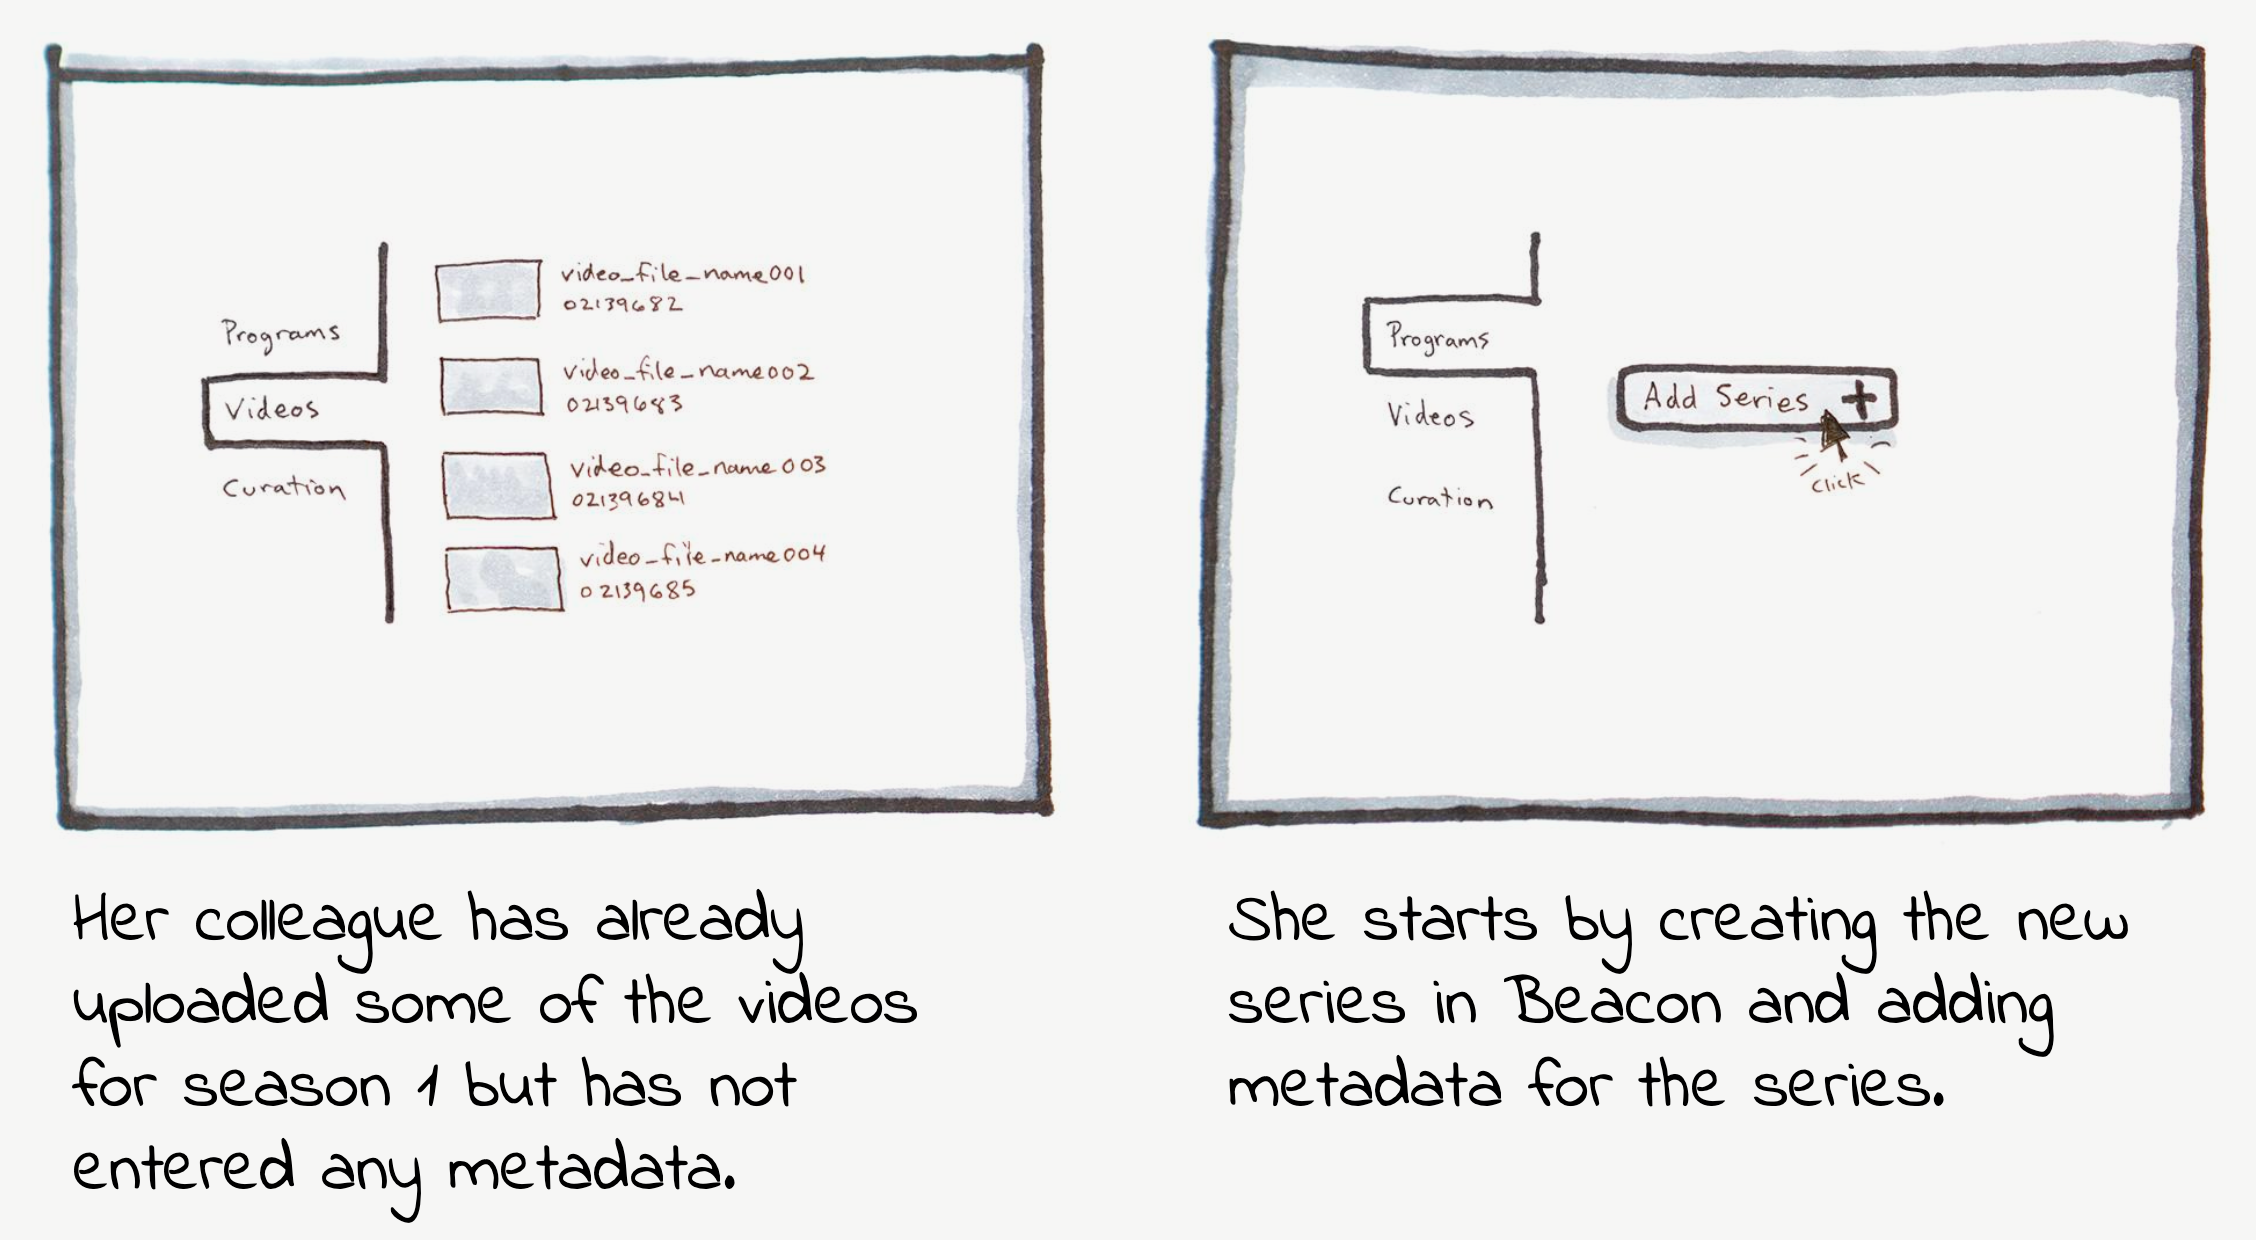 Programs
Videos
Curation
video_file_name001
02139682
video_file_name002
02139683
video_file_name003
02139684
video_file_name004
02139685
Her colleague has already
uploaded some of the videos
for season 1 but has not
entered any metadata.
Programs
Videos
Curation
Add Series +
click
She starts by creating the new
series in Beacon and adding
metadata for the series.